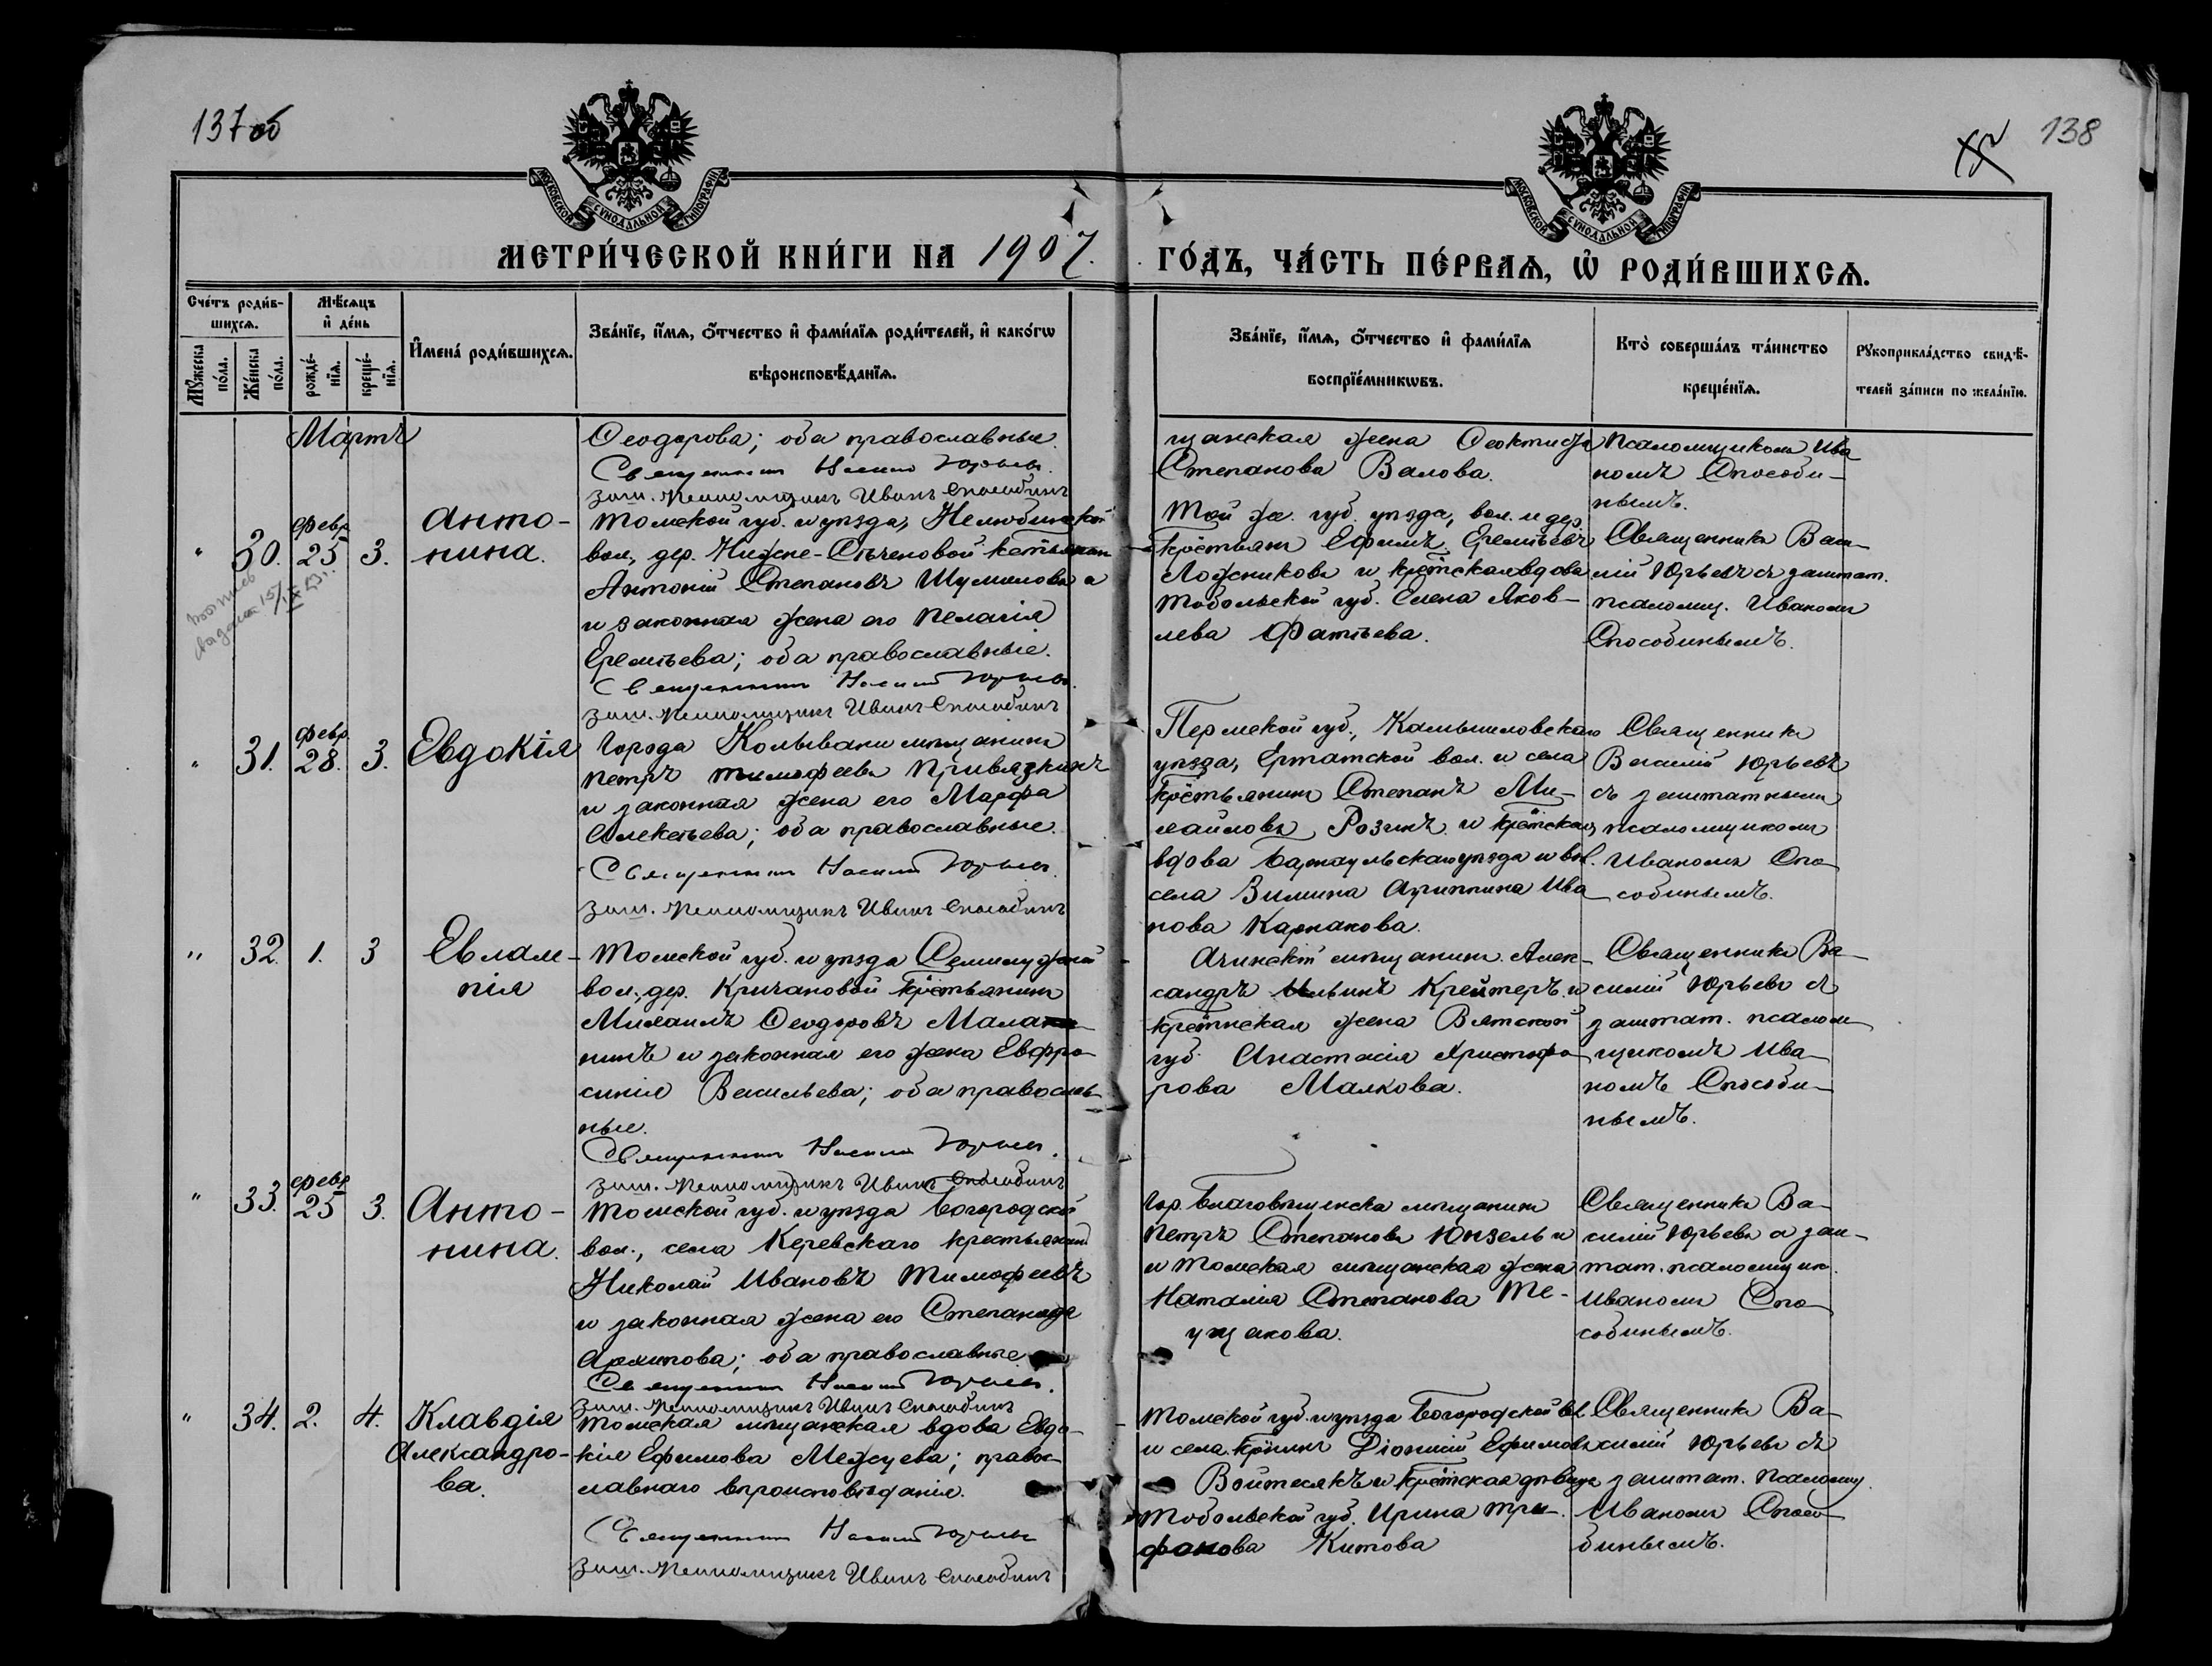 137 об
138
МОСКОВСКОЙ СѴНОДАЛЬНОЙ ТИПОГРАФІИ
МОСКОВСКОЙ СѴНОДАЛЬНОЙ ТИПОГРАФІИ
МЕТРИ́ЧЕСКОЙ КНИ́ГИ НА 1907.
ГО́ДЪ, ЧА́СТЬ ПЕ́РВАѦ, Ѡ҆ РОДИ́ВШИХСѦ.
Сче́тъ роди́в-
шихсѧ.
Мѣ́сѧцъ
и҆ де́нь
И҆мена́ роди́вшихсѧ.
Зва́нїе, и҆́мѧ, ѻ҆́тчество и҆ фами́лїѧ роди́телей, и҆ како́гѡ
вѣроисповѣ́данїѧ.
Мꙋ́жеска
по́ла.
Же́нска
по́ла.
рожде́-
нїѧ.
креще́-
нїѧ.
Зва́нїе, и҆́мѧ, ѻ҆́тчество и҆ фами́лїѧ
воспрїе́мникѡвъ.
Кто̀ соверша́лъ та́инство
креще́нїѧ.
Рꙋкоприкла́дство свидѣ́-
телей за́писи по жела́нїю.
Мартъ
Ѳеодорова; оба православные.
Священникъ Василій Юрьевъ.
Заш. Псаломщикъ Иванъ Способинъ
щанская жена Ѳеоктиста
Степанова Валова.
псаломщикомъ Ива
номъ Способи-
нымъ.
" 30. февр 25 3.
Анто-
нина.
Томской губ. и уѣзда, Нелюбинской
вол., дер. Нижне-Сѣченовой крестьянин
Антоній Степановъ Шумиловъ
и законная жена его Пелагія
Еремѣева; оба православные.
Священникъ Василій Юрьевъ.
Заш. Псаломщикъ Иванъ Способинъ
Той же губ. уѣзда, вол. и дер.
крестьянин Ефимъ Еремѣевъ
Ложниковъ и крестская вдова
Тобольской губ. Елена Яков-
лева Фатѣева.
Священникъ Васи-
лій Юрьевъ съ заштат.
псаломщ. Иваномъ
Способинымъ.
выдана 15/IX 53.
" 31. февр. 28. 3.
Евдокія
Города Колывани мѣщанинъ
Петръ Тимофеевъ Привязкинъ
и законная жена его Марфа
Алексѣева; оба православные.
Священникъ Василій Юрьевъ.
Заш. Псаломщикъ Иванъ Способинъ
Пермской губ., Камышловскаго
уѣзда, вол. и села
крестьянинъ Степанъ Ми-
хайловъ Розинъ и крестская
вдова Барнаульскаго уѣзда и вол.
села Зимина Агриппина Ива
нова Карпакова.
Священникъ
Василій Юрьевъ
съ заштатнымъ
псаломщикомъ
Иваномъ Спо-
собинымъ.
" 32. 1. 3
Евлам-
пія
Томской губ. и уѣзда Семилужной
вол., дер. Кричановой крестьянинъ
Михаилъ Ѳеодоровъ Мала
нинъ и законная его жена Евфро-
синія Васильева; оба православ-
ные.
Священникъ Василій Юрьевъ.
Заш. Псаломщикъ Иванъ Способинъ
Ачинскій мѣщанинъ Алек-
сандръ Ильинъ Крейтеръ и
крестнская жена Вятской
губ. Анастасія Христофо-
рова Малкова.
Священникъ Ва-
силій Юрьевъ съ
заштат. псалом-
щикомъ Ива-
номъ Способи-
нымъ.
" 33. февр 25 3.
Анто-
нина.
Томской губ. и уѣзда Богородской
вол., села Керевскаго крестьянинъ
Николай Ивановъ Тимофеевъ
и законная жена его Степанида
Архипова; оба православные.
Священникъ Василій Юрьевъ.
Заш. Псаломщикъ Иванъ Способинъ
Гор. Благовѣщенска мѣщанинъ
Петръ Степановъ Юнзель и
и Томская мѣщанская жена
Наталія Степанова Те-
ущакова.
Священникъ Ва-
силій Юрьевъ а заш-
тат. псаломщик.
Иваномъ Спо-
собинымъ.
" 34. 2. 4.
Клавдія
Александро-
ва.
Томская мѣщанская вдова Евдо-
кія Ефимова Межуева; правос-
лавнаго вѣроисповѣданія.
Священникъ Василій Юрьевъ
Заш. Псаломщикъ Иванъ Способинъ
Томской губ. и уѣзда Богородской вол.
и села Діонисій Ефимовъ
Войтехякъ и крестская дѣвица
Тобольской губ. Ирина Три-
фонова Китова
Священникъ Ва-
силій Юрьевъ съ
заштат. псаломщ.
Иваномъ Спосо-
бинымъ.